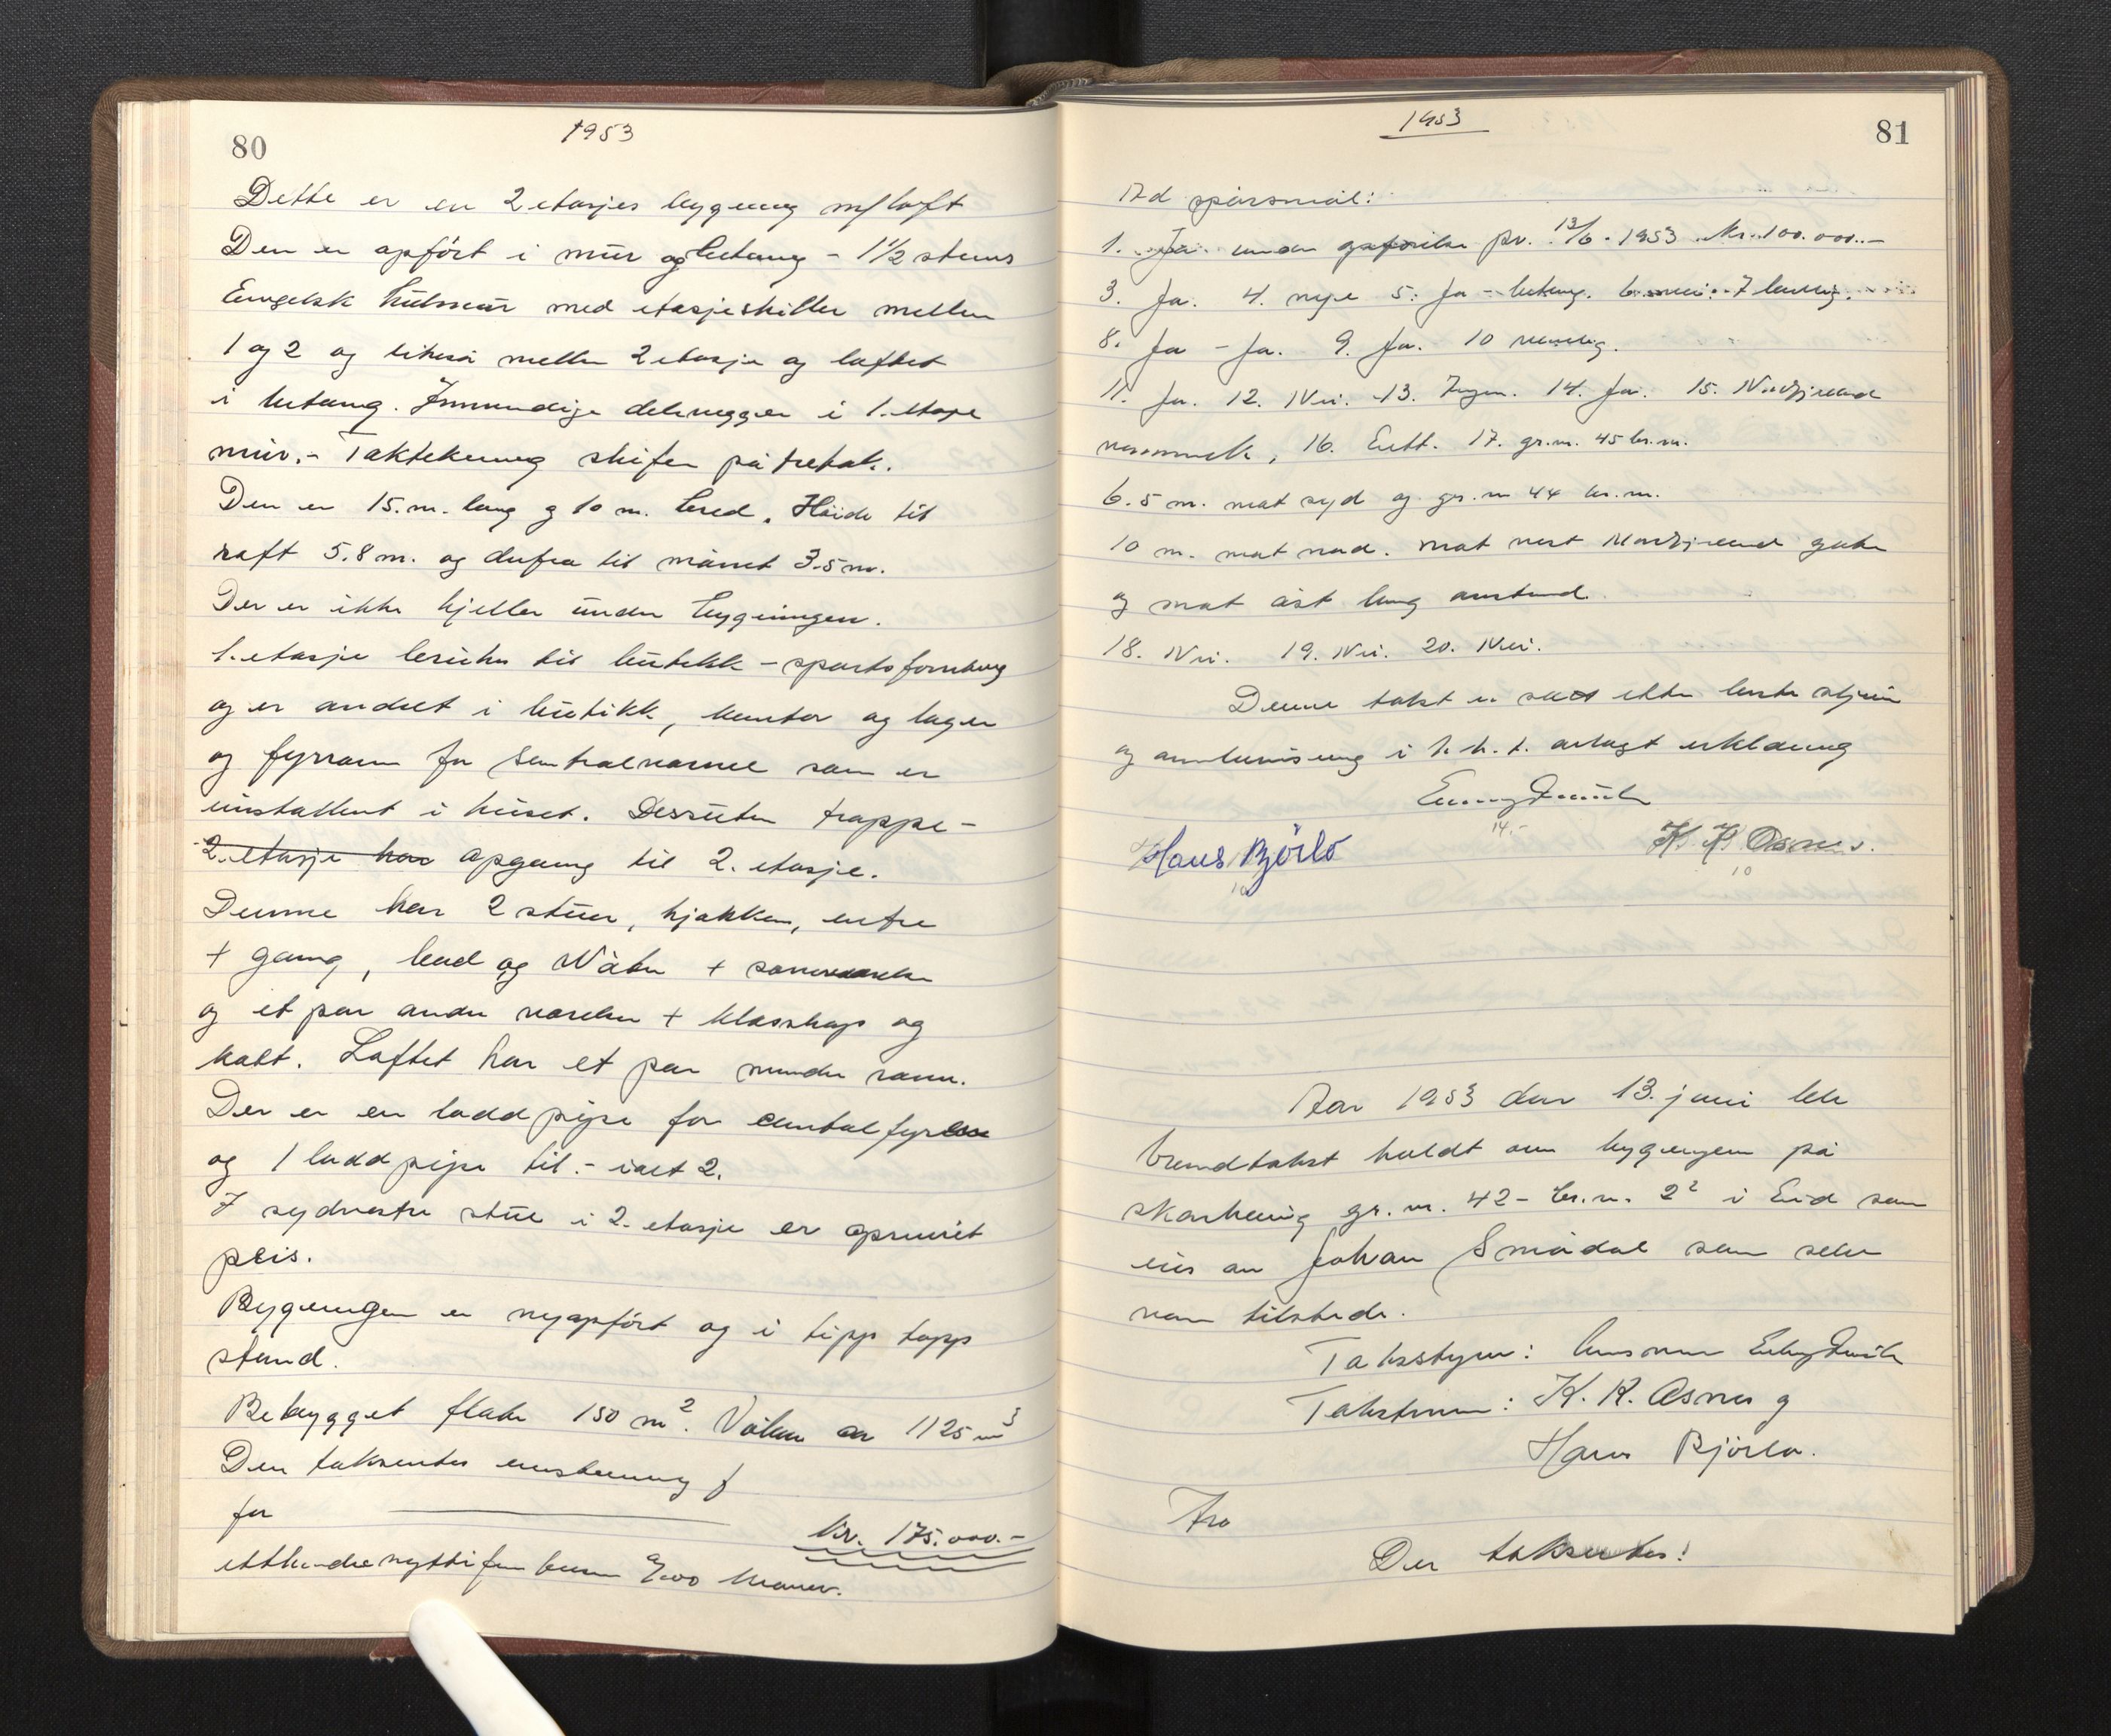 80
1953
Dette er en 2 etasjes bygning m/loft
Den er opført i mur og betong - 1 1/2 stens
Engelsk hulmur med etasjeskiller mellem
1 og 2 og likeså mellem 2 etasje og loftet
i betong. Innvendige delevegger i 1. etasje
mur. - Taktekning skifer på tretak.
Den er 15. m. lang og 10 m. bred. Høide til
raft 5.8 m. og derfra til mönet 3.5 m.
Der er ikke kjeller under bygningen.
1. etasje brukes til butikk - sportsforretning
og er andelt i butikk, kontor og lager
og fyrrom for sentralvarme som er
installert i huset. Dessuten trappe-
2. etasje har opgang til 2. etasje.
Denne har 2 stuer, kjøkken, entre
+ gang, bad og W
og et par andre værelser + klesskap og
kott. Loftet har et par mindre rom.
Der er en ladd pipe for sentralfyren
og 1 ladd pipe til. - ialt 2.
I sydvestre stue i 2. etasje er opmurt
peis.
Bygningen er nyopført og i tipp topp
stand.
Bebygget flate 150 m². Volum er 1125 m³
Den takseres
for
kr. 175.000.-
etthundreogsyttifemtusen 0/00 kroner.
1953
81
Ad spörsmål:
1. Ja under pr. 13/6 - 1953 kr. 100.000.-
3. Ja. 4. nye 5. Ja - betong. 6. mur. 7
8. Ja - Ja. 9. Ja. 10 nemlig.
11. Ja. 12. Nei. 13. Ingen. 14. Ja. 15. Nordfjoreid
16. Ett. 17. gr.nr. 45 br.nr.
6.5 m. mot syd og gr. nr 44 br. nr.
10 m. mot nord. mot vest Nordfjoreid gate
og mot öst lang avstand.
18. Nei. 19. Nei. 20. Nei.
Denne takst er satt etter beste skjönn
og overbevisning i h. h. t. avlagt erklæring
14.-
Hans Björlo
10
K. K. Osnes.
10
Aar 1953 den 13. juni ble
branntakst holdt over bygningen på
gr. nr. 42 - br. nr. 2² i Eid som
eies av Johan Smådal som selv
var tilstede.
Takststyrer: lensmann
Takstmenn: K. K. Osnes og
Hans Björlo.
Der takseres!